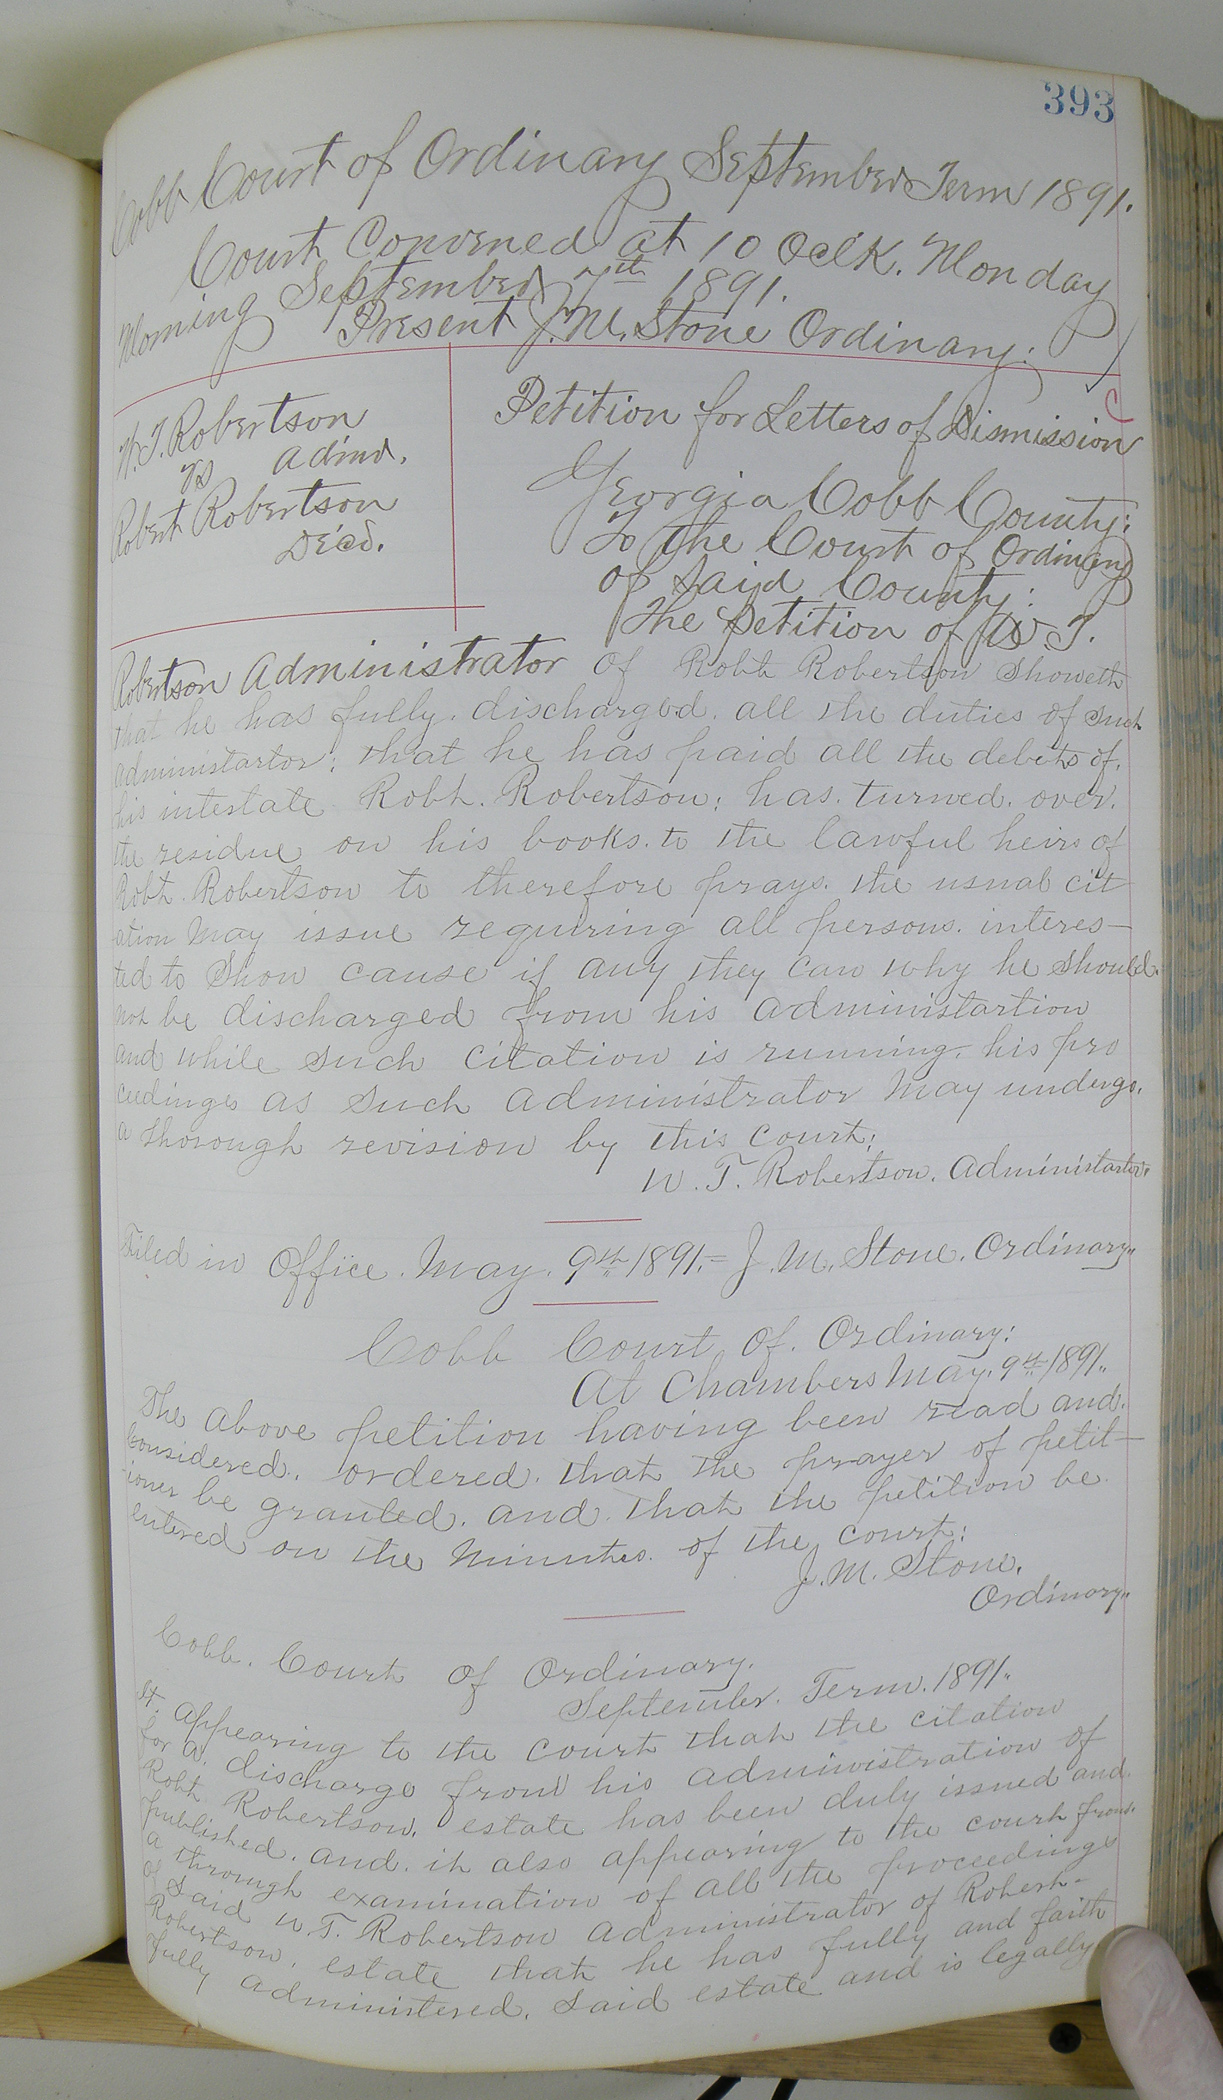 393
Cobb Court of Ordinary September Term 1891.
Court Convened at 10 Oclk. Monday
Morning September 7th 1891.
Present J. M. Stone Ordinary:
W. T. Robertson
Admr.
vs
Robert Robertson
Dec'd.
Petition for Letters of Dismission
Georgia Cobb County:
To the Court of Ordinary
of said County:
The Petition of W. T.
Robertson Administrator of Robt Robertson Showeth
that he has fully. discharged. all the duties of such
administartor; that he has paid all the debts of.
his intestate Robt. Robertson; has. turned. over.
the residue on his books. to the lawful heirs of
Robt. Robertson to therefore prays. the usual cit
ation may issue requiring all persons. interes-
ted to Show cause if any they can why he should.
not be discharged from his administartion
and while such citation is running. his pro
ceedings as such administrator may undergo.
a thorough revision by this court;
W. T. Robertson. Administartor.
Filed in Office. May. 9th 1891.= J. M. Stone. Ordinary.
Cobb Court Of. Ordinary:
At Chambers May. 9th 1891.
The above petition having been read and.
considered. ordered. that the prayer of petit-
ioner be granted. and. that the petition be
entered on the minutes. of the court:
J. M. Stone.
Ordinary.
Cobb. Court of Ordinary.
September. Term. 1891.
It. appearing to the court that the citation
for a. discharge from his administration of
Robt. Robertson. estate has been duly issued and.
published. and. it also appearing to the court from.
a through examination of all the proceedings
of said W. T. Robertson administrator of Robert-
Robertson. estate that he has fully and faith
fully administered. said estate and is legally